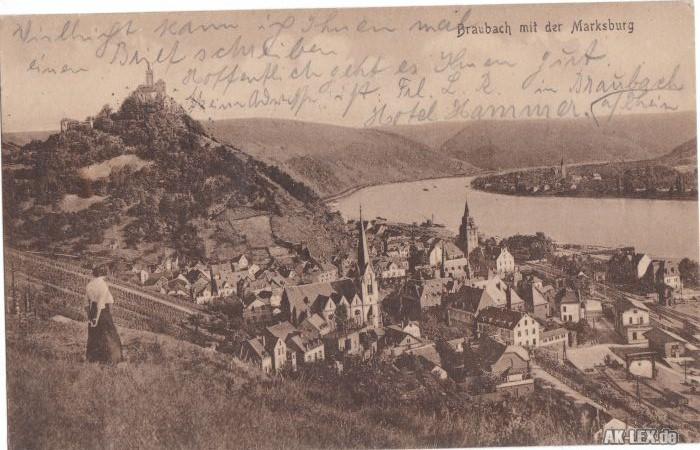 Braubach mit der Marksburg
Vielleicht kann ich Ihnen mal
einen Brief schreiben
Hoffentlich geht es Ihnen gut.
Meine Adresse ist Frl. L. R. in Braubach
Hotel Hammer. a/Rhein
AK-LEX.de